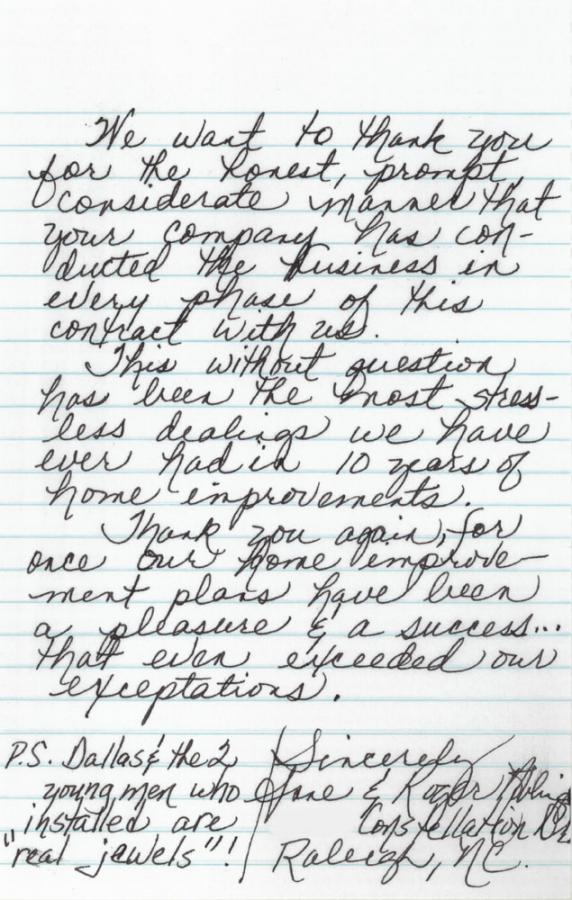 We want to thank you
for the honest, prompt,
considerate manner that
your company has con-
ducted the business in
every phase of this
contract with us.
This without question
has been the most stress-
less dealings we have
ever had in 10 years of
home improvements.
Thank you again, for
once our home improve-
ment plans have been
a pleasure & a success...
that even exceeded our
exceptations.
P.S. Dallas & the 2
young men who
installed are
"real jewels"!
Sincerely
Jane & Roger
Constellation Dr.
Raleigh, NC.